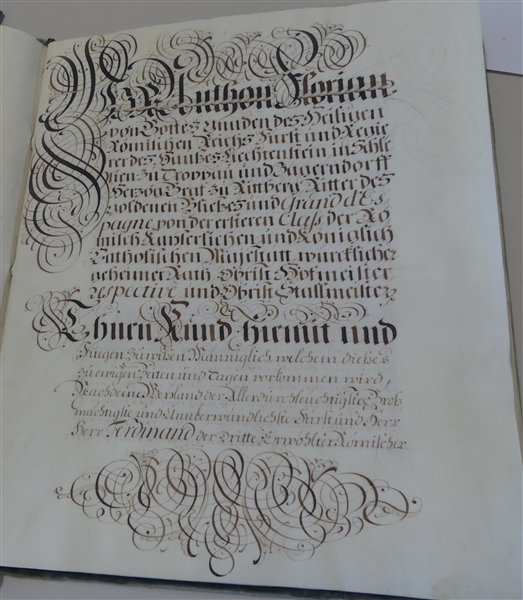 Wir Anthon Florian
von Gottes Gnaden des Heiligen
Römischen Reichs Fürst und Regie
rer des Haußes Liechtenstein in Schle
sien zu Troppau und Jägerndorff
Hertzog Graf zu Rittberg Ritter des
Goldenen Vließes und Grand d'Es
pagne von der ersteren Claß der Rö
misch Kayserlichen und Königlich
Catholischen Majestätt würcklicher
geheimer Rath Obrist Hofmeister
respective und Obrist Stallmeister
Thuen Kund hiermit und
Fuegen zu wißen Männiglich welchem dießes
zu ewigen Zeiten und Tagen vorkommen wird,
Nachdeme Weyland der Allerdurchleuchtigste Groß
mächtigste und Unüberwündlichste Fürst und Herr
Herr Ferdinand der Dritte Erwöhlter Römischer